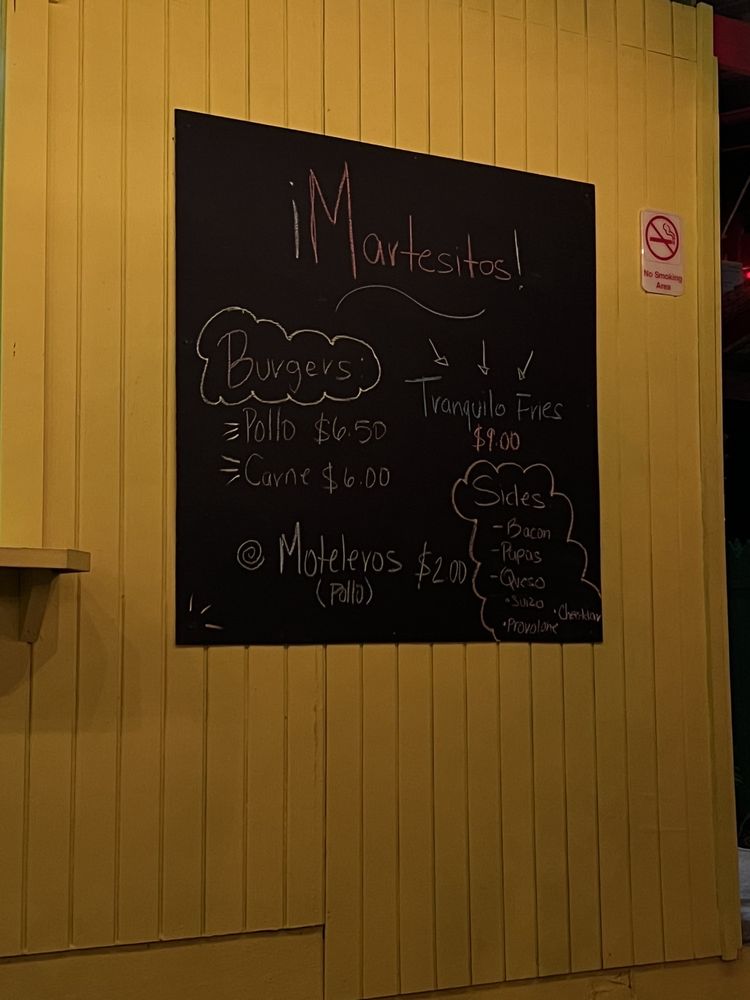 ¡Martesitos!
Burgers:
Pollo $6.50
Carne $6.00
Tranquilo Fries
$9.00
@ Moteleros $2.00
(Pollo)
Sides
- Bacon
- Papas
- Queso
• Suizo • Cheddar
• Provolone
No Smoking
Area